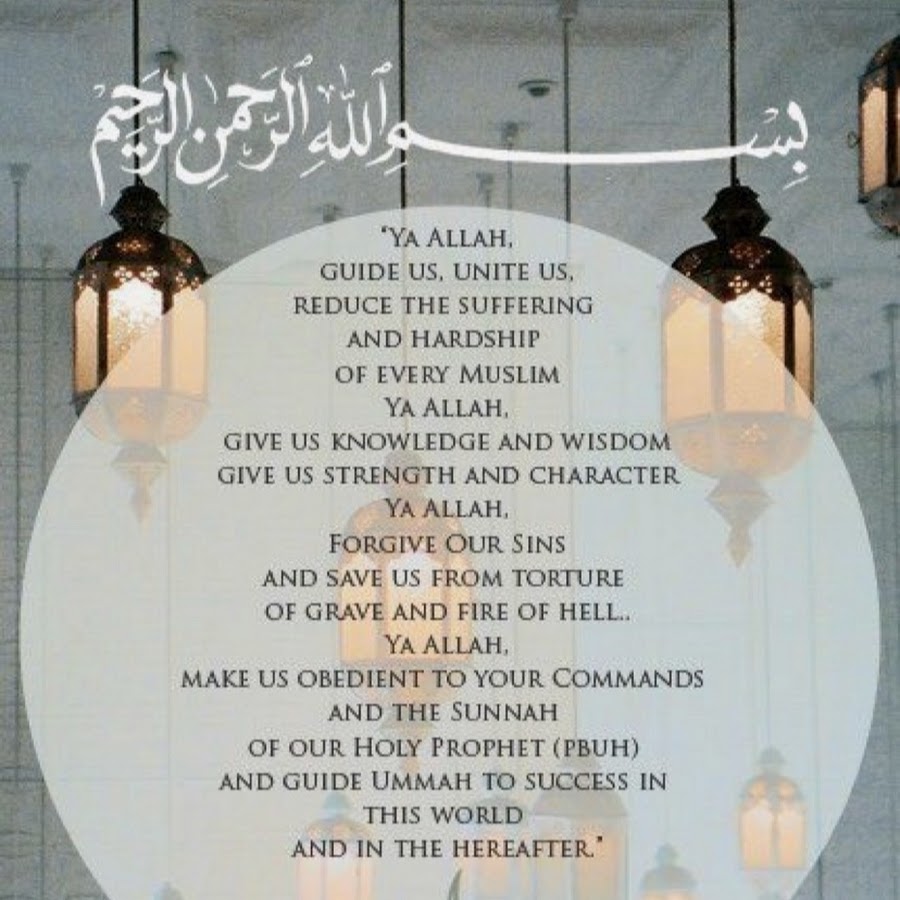 بِسْمِ ٱللّٰهِ ٱلرَّحْمٰنِ ٱلرَّحِيْمِ
"Ya Allah,
guide us, unite us,
reduce the suffering
and hardship
of every Muslim
Ya Allah,
give us knowledge and wisdom
give us strength and character
Ya Allah,
Forgive Our Sins
and save us from torture
of grave and fire of hell..
Ya Allah,
make us obedient to your Commands
and the Sunnah
of our Holy Prophet (pbuh)
and guide Ummah to success in
this world
and in the hereafter."